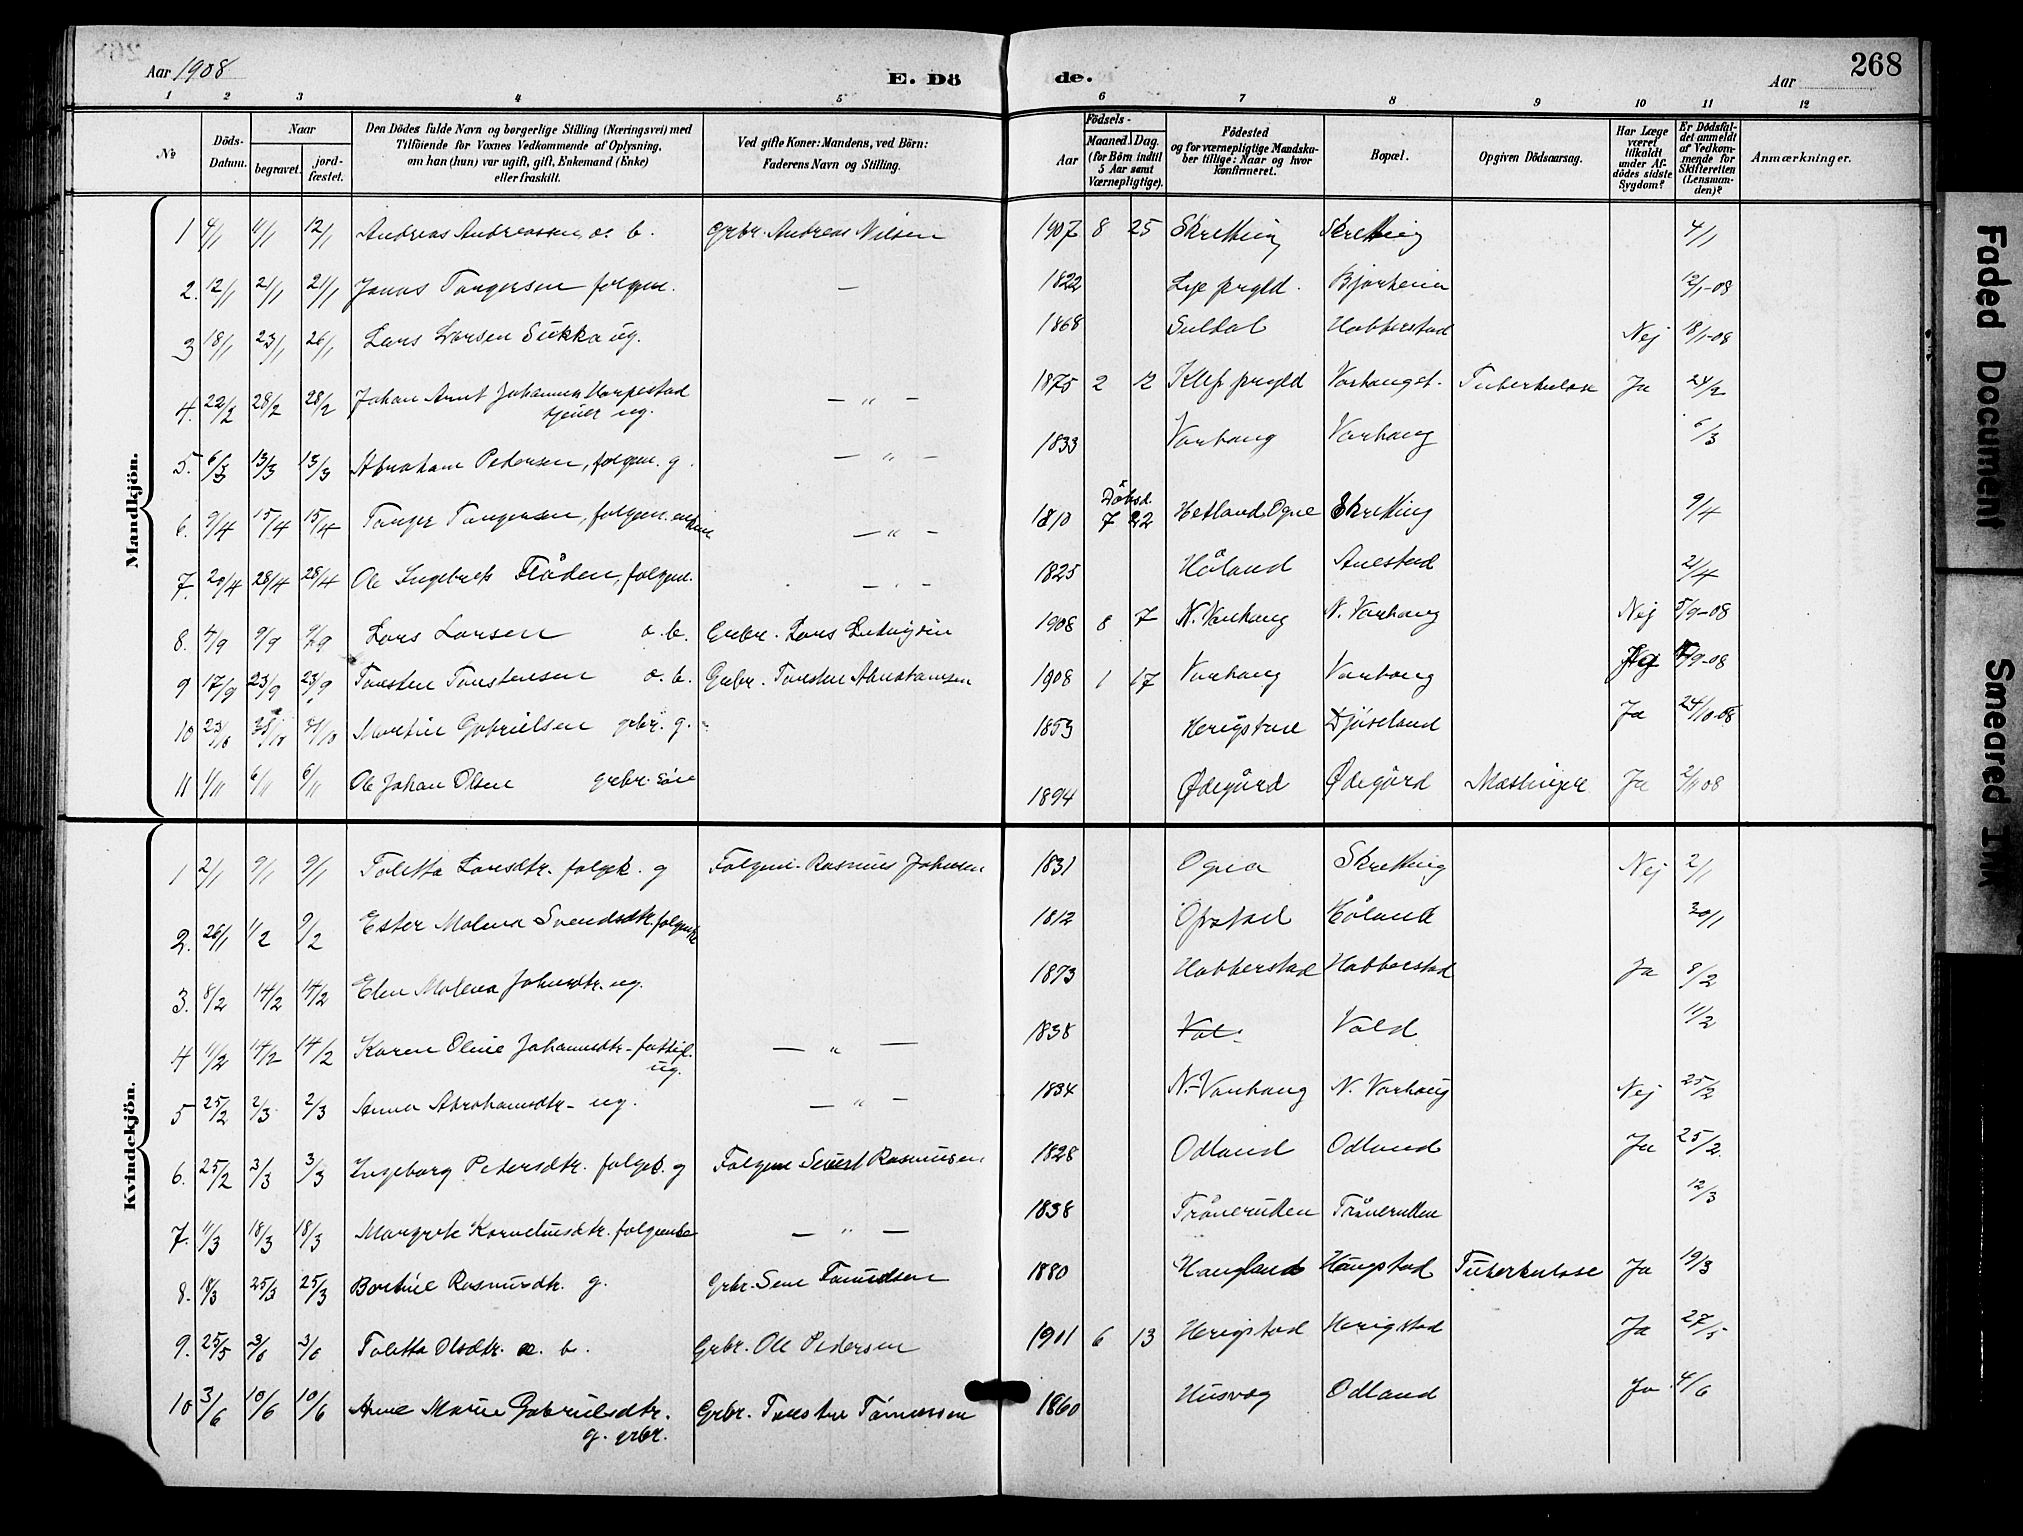 Aar 1908
E. Dö
de.
Aar
268
1 2 3 4 5 6 7 8 9 10 11 12
No
Döds-Datum.
Naar
begravet.
jord-fæstet.
Den Dödes fulde Navn og borgerlige Stilling (Næringsvei) med
Tilföiende for Voxnes Vedkommende af Oplysning,
om han (hun) var ugift, gift, Enkemand (Enke)
eller fraskilt.
Ved gifte Koner: Mandens, ved Börn:
Faderens Navn og Stilling.
Födsels-
Aar
Maaned. Dag.
(for Börn indtil
5 Aar samt
Værnepligtige).
Födested
og for værnepligtige Mandska-
ber tillige: Naar og hvor
konfirmeret.
Bopæl.
Opgiven Dödsaarsag.
Har Læge
været
tilkaldt
under Af-
dödes sidste
Sygdom?
Er Dödsfal-
det anmeldt
af Vedkom-
mende for
Skifteretten
(Lensman-
den)?
Anmærkninger.
Mandkjön.
1 4/1 11/1 12/1 Andreas Andreassen, æ. b. Grbr. Andreas Nilsen 1907 8 25 Skretting Skretting 4/1
2. 12/1 21/1 21/1 Jonas Tongersen folgem. — 1822 Lye prgld. Bjorheim 12/1-08
3 18/1 23/1 26/1 Lars Larsen Sukka ug. 1868 Suldal Hobberstad Nej 18/1-08
4. 22/2 28/2 28/2 Johan Arnt Johannes Horpestad
tjener ug. — " — 1875 2 12 Klep prgld Varhaugst. Tuberkulose Ja 24/2
5. 6/3 13/3 13/3 Abraham Pedersen, folgem. g. — " — 1833 Varhaug Varhaug 6/3
6. 9/4 15/4 15/4 Tonger Tongersen, folgem. — " — 1810 Döbsd. 7 22 Hetland Ogne Skretting 9/4
7. 20/4 28/4 28/4 Ole Ingebret Flåden, folgem. — " — 1825 Håland Auestad 21/4
8. 4/9 9/9 9/9 Lars Larsen æ. b. Grbr. Lars Ludvigsen 1908 8 7 N. Varhaug N. Varhaug Nej 5/9-08
9 17/9 23/9 23/9 Torsten Torstensen æ. b. Grbr. Torsten Abrahamsen 1908 1 17 Varhaug Varhaug /9-08
10 23/10 /10 /10 Martin Gabrielsen grbr. g. 1853 Herigstad Djuseland Ja 24/10-08
11 1/11 6/11 6/11 Ole Johan Olsen grbr. sön 1894 Ødegård Ødegård Mæslinger Ja 2/11 08
Kvindekjön.
1 2/1 9/1 9/1 Toletta Larsdtr. folgek. g Folgem. Rasmus Johnsen 1831 Ogna Skretting Nej 2/1
2. 26/1 1/2 9/2 Ester Malena Svendsdtr. 1812 Opstad Håland 30/1
3. 8/2 14/2 14/2 Elen Malena Johnsdtr. ug. 1873 Hobberstad Hobberstad Ja 8/2
4 11/2 14/2 14/2 Karen Oline Johannesdtr. fattigl.
ug. — " — 1838 Vol. Vold 11/2
5 25/2 2/3 2/3 Anna Abrahamsdtr. ug. — " — 1834 N. Varhaug N. Varhaug Nej 25/2
6. 25/2 3/3 3/3 Ingeborg Pedersdtr. folgek. g Folgem Sivert Rasmussen 1828 Odland Odland Ja 25/2.
7. 11/3 18/3 18/3 Margrete Korneliusdtr. folgenke — " — 1838 Tråneruden Tråneruden 12/3
8. 18/3 25/3 25/3 Bertine Rasmusdtr. g. Grbr. Sem Tønnesen 1880 Haugland Haugstad Tuberkulose Ja 19/3
9. 25/5 3/6 3/6 Toletta Olsdtr. æ. b. Grbr. Ole Pedersen 1901 6 13 Herigstad Herigstad Ja 27/5
10 3/6 10/6 10/6 Anne Marie Gabrielsdtr.
g. grbr. Grbr. Torsten Tønnessen 1860 Husvog Odland Ja 4/6
Faded Document
Smeared Ink